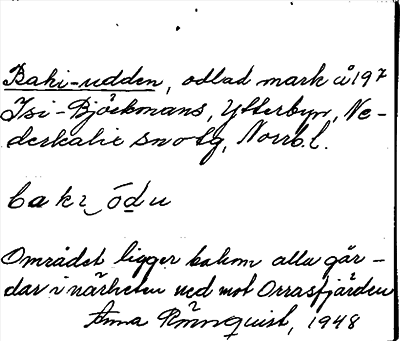 Baki-udden, odlad mark å 197
Isi-Björkmans, Ytterbyn, Ne-
derkalix snotg, Norrb. l.
bakι‿ó̱du
Området ligger bakom alla går-
dar i närheten ned mot Orrasfjärden
Anna Rönnquist, 1948